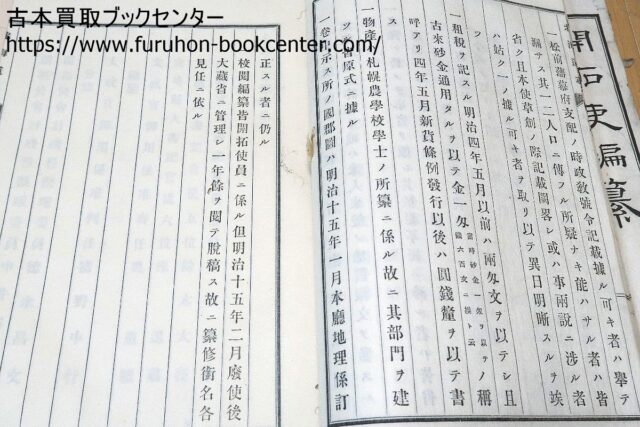 古本買取ブックセンター
https://www.furuhon-bookcenter.com/
開拓使編纂
一松前藩幕府支配ノ時政教號令記載據ル可キ者ハ擧テ
漏サス其一二人口ニ傳フル所疑ナキ能ハサル者ハ皆
省ク且本使草創ノ際記載闕畧シ或ハ事兩説ニ渉ル者
ハ姑ク一ノ據ル可キ者ヲ取リ以テ異日明晣スルヲ竢
ツ
一租税ヲ記スル明治四年五月以前ハ兩匁文ヲ以テシ且
古來砂金通用タルヲ以テ金一匁ノ稱
呼アリ四年五月新貨條例發行以後ハ圓錢釐ヲ以テ書
ス
一物産ハ札幌農學校學士ノ所纂ニ係ル故ニ其部門ヲ建
ツル皆原式ニ據ル
一卷首示ス所ノ國郡圖ハ明治十五年一月本廳地理係訂
正スル者ニ仍ル
校閲編纂皆開拓使員ニ係ル但明治十五年二月廢使後
大藏省ニ管理シ一年餘ヲ閲テ脱稿ス故ニ纂修銜名各
見任ニ依ル